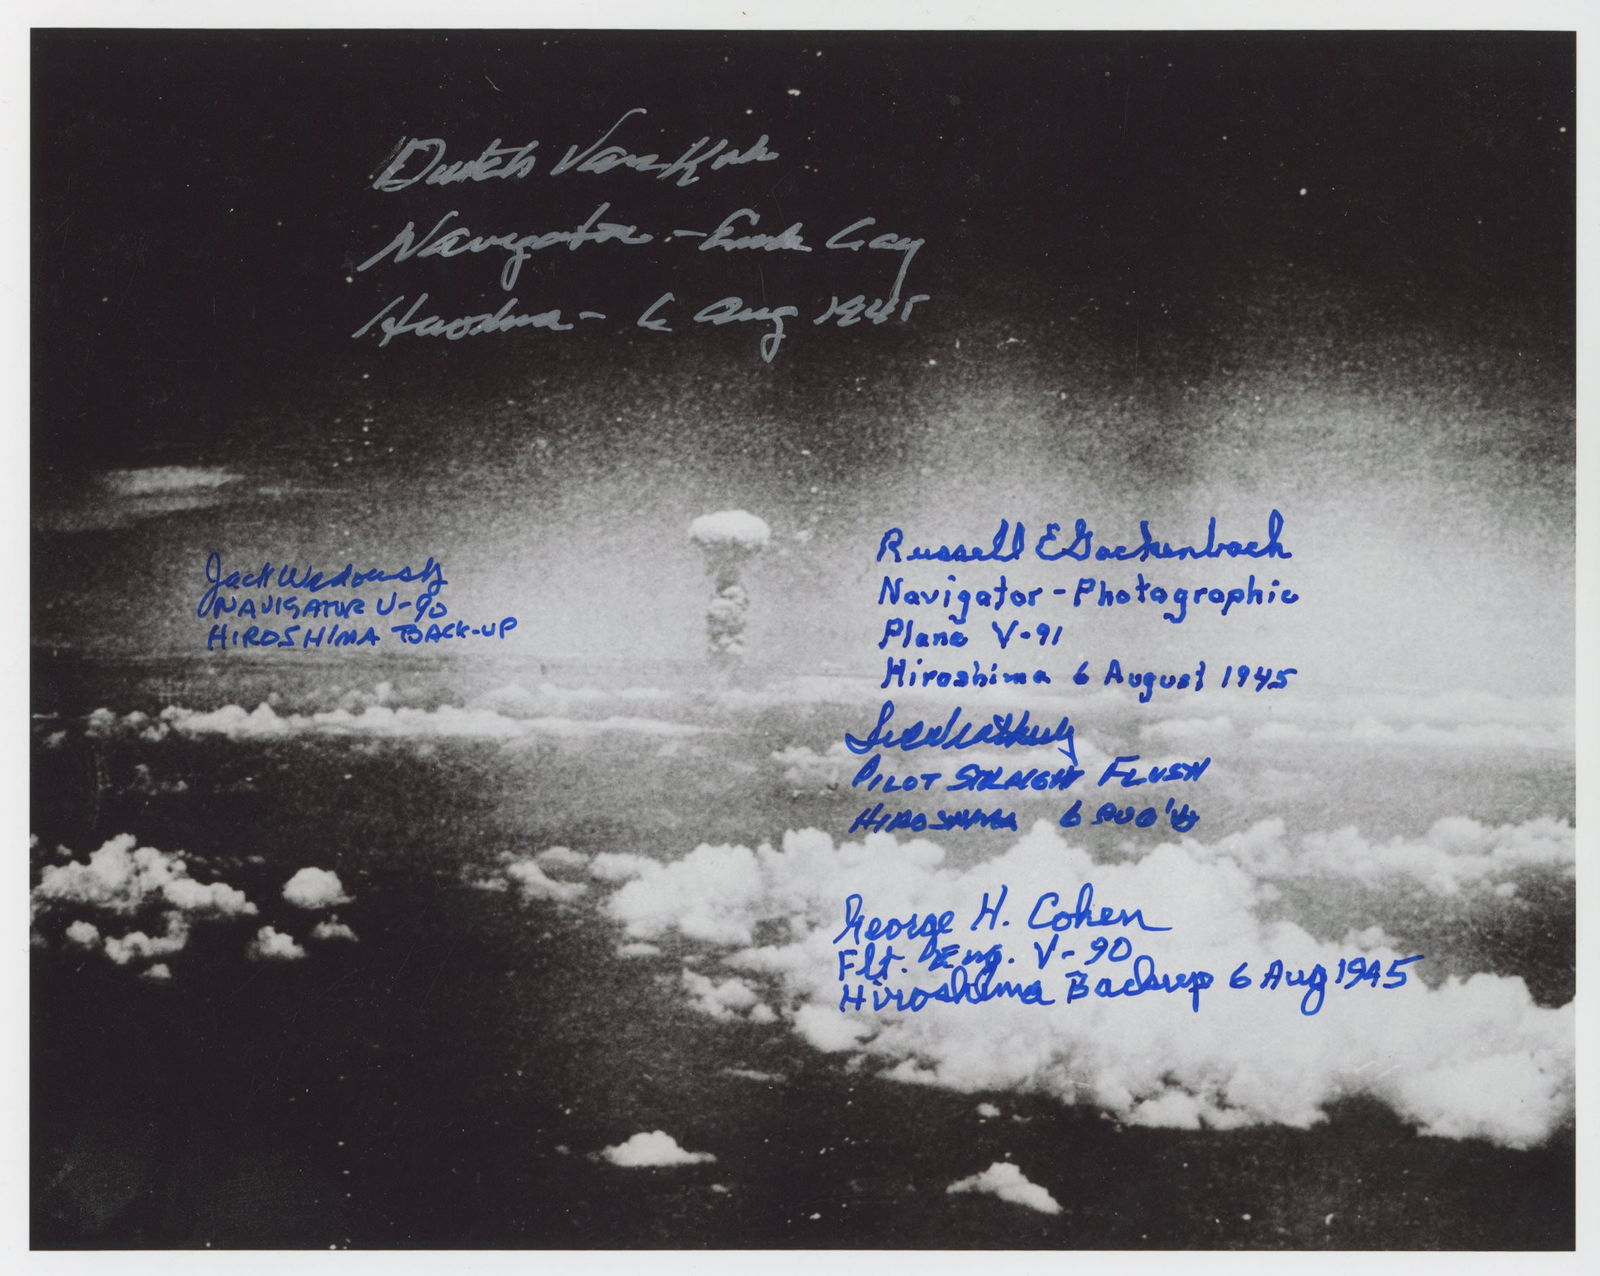 Dutch Van Kirk
Navigator - Enola Gay
Hiroshima - 6 Aug 1945
Jack Widowsky
NAVIGATOR V-90
HIROSHIMA BACK-UP
Russell E Gackenbach
Navigator - Photographic
Plane V-91
Hiroshima 6 August 1945
PILOT STRAIGHT FLUSH
HIROSHIMA 6 AUG '45
George H. Cohen
Flt. Eng. V-90
Hiroshima Backup 6 Aug 1945